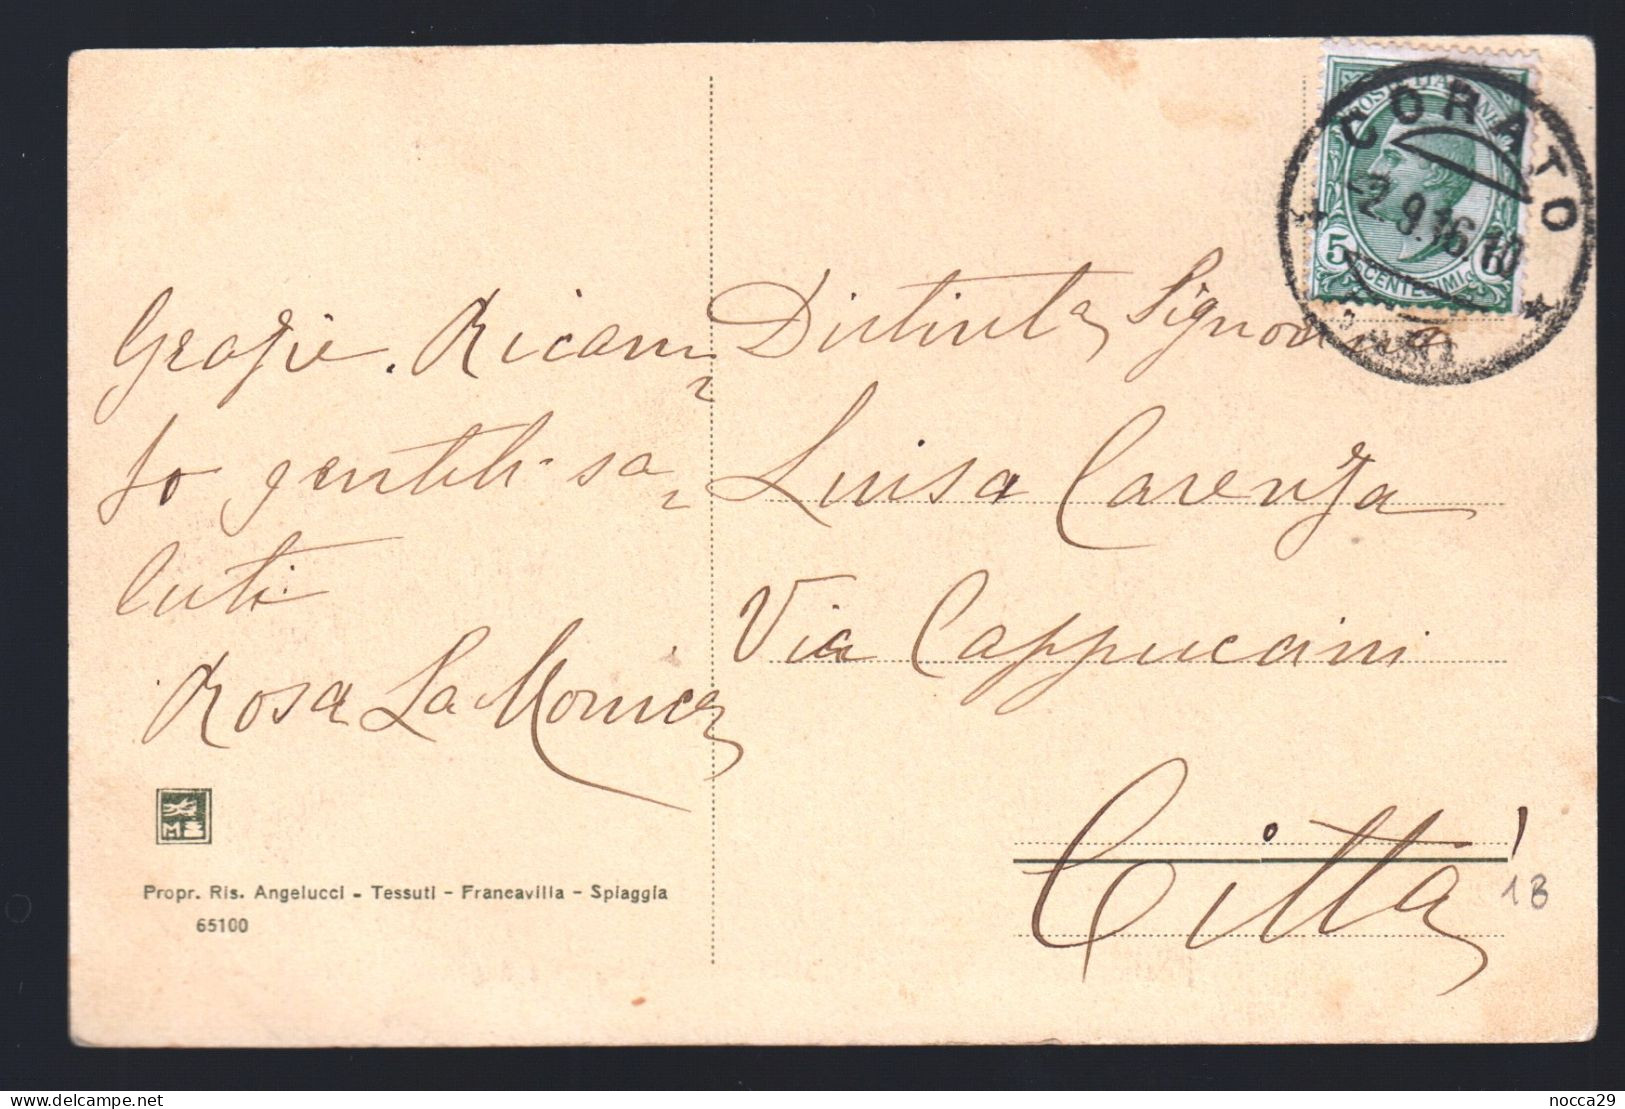 POSTE ITALIANE
CORATO
-2.9.16.10
5 CENTESIMI
Grazie. Ricam-
bo gentili sa-
luti
Rosa La Monica
Distinta Signorina
Luisa Carenza
Via Cappuccini
Città
1B
M
Propr. Ris. Angelucci - Tessuti - Francavilla - Spiaggia
65100
nocca29